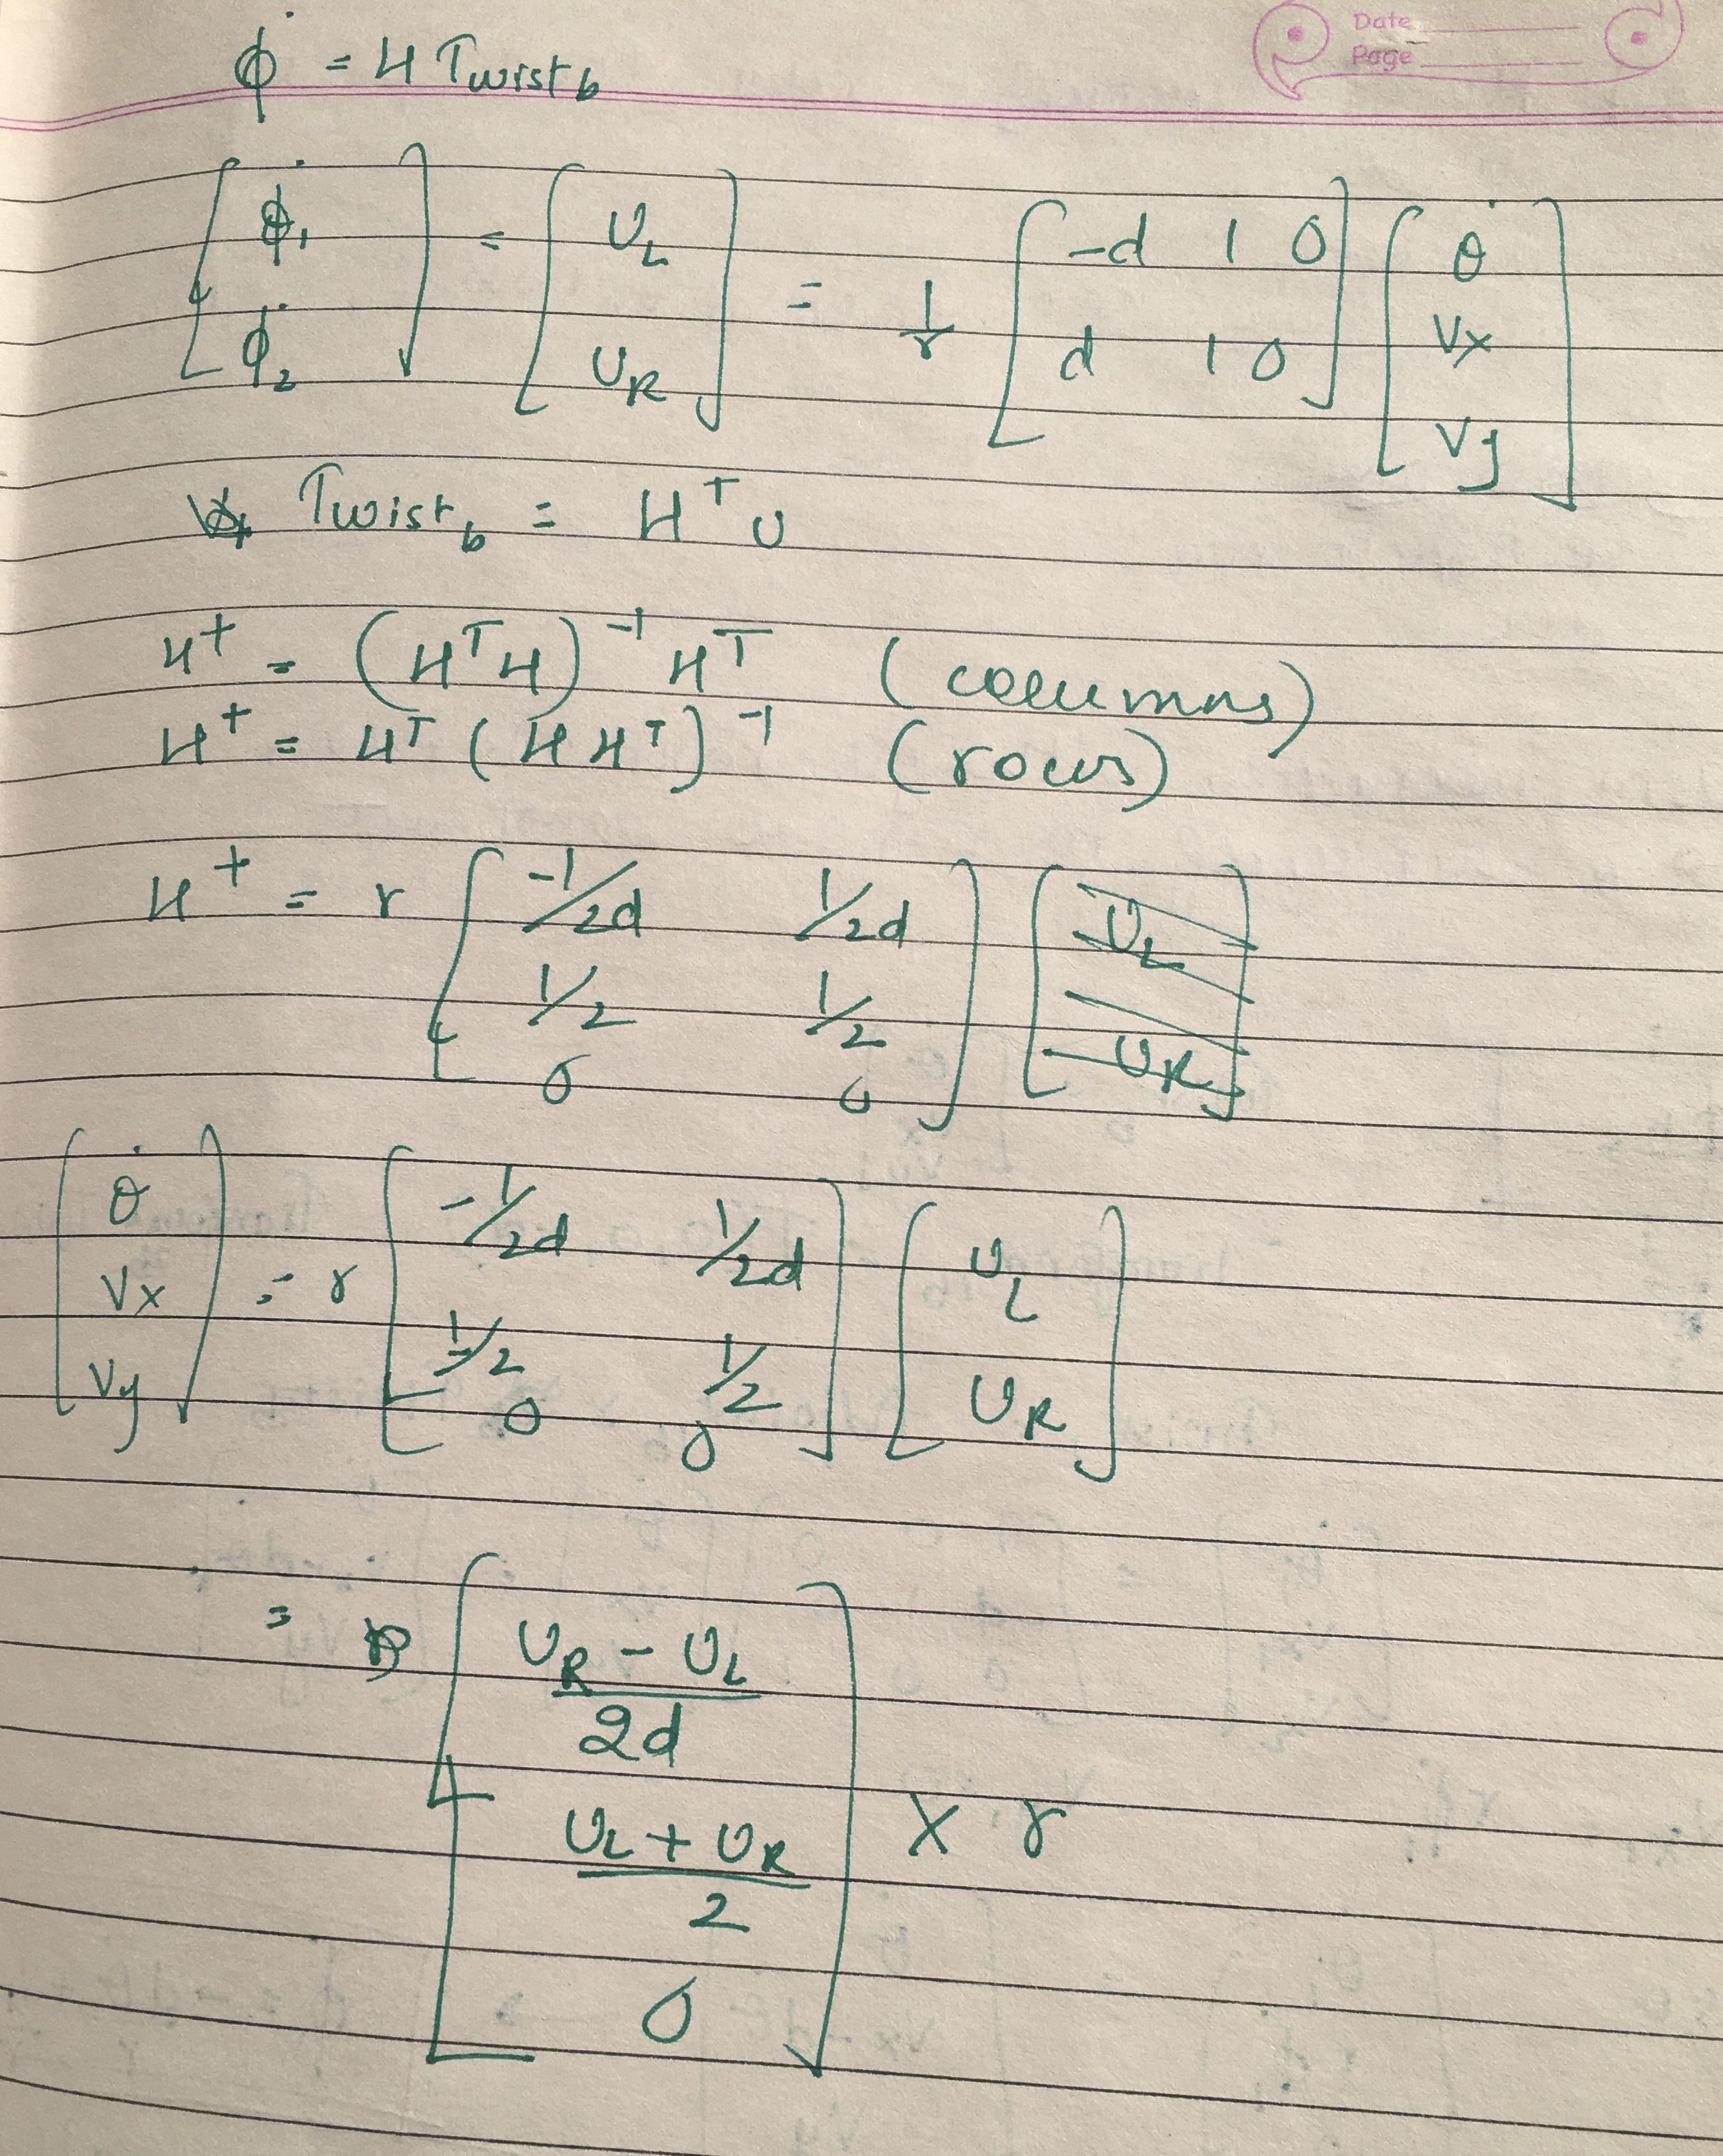 Date
Page
ϕ̇ = H Twist_b
[ϕ̇₁ ; ϕ̇₂] = [U_L ; U_R] = 1/r [-d 1 0 ; d 1 0] [θ̇ ; Vx ; Vy]
Twist_b = H^† U
H^+ = (H^T H)^-1 H^T (columns)
H^+ = H^T (H H^T)^-1 (rows)
H^+ = r [-1/2d 1/2d ; 1/2 1/2 ; 0 0] [U_L ; U_R]
[θ̇ ; Vx ; Vy] = r [-1/2d 1/2d ; 1/2 1/2 ; 0 0] [U_L ; U_R]
= [(U_R - U_L)/2d ; (U_L + U_R)/2 ; 0] × r